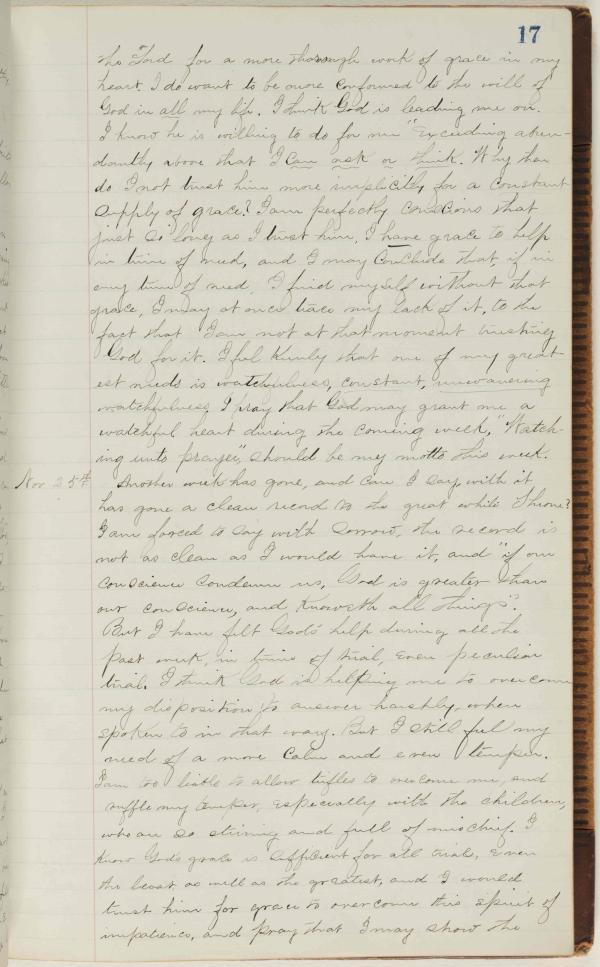 17
the Lord for a more thorough work of grace in my
heart. I do want to be more conformed to the will of
God in all my life. I think God is leading me on.
I know he is willing to do for me "Exceeding abun-
dantly above that I can ask or think. Why then
do I not trust him more implicitly for a constant
supply of grace? I am perfectly conscious that
just so long as I trust him, I have grace to help
in time of need, and I may conclude that if in
any time of need, I find myself without that
grace, I may at once trace my lack of it, to the
fact that I am not at that moment trusting
God for it. I feel keenly that one of my great-
est needs is watchfulness, constant, unwavering
watchfulness. I pray that God may grant me a
watchful heart during the coming week, "Watch-
ing unto prayer", should be my motto this week.
Nov 25th Another week has gone, and can I say with it
has gone a clean record to the great white Throne?
I am forced to say with sorrow, the record is
not as clean as I would have it, and "if our
conscience condemn us, God is greater than
our conscience, and knoweth all things".
But I have felt God's help during all the
past week, in time of trial, even peculiar
trial. I think God is helping me to overcome
my disposition to answer harshly, when
spoken to in that way. But I still feel my
need of a more calm and even temper.
I am too liable to allow trifles to overcome me, and
ruffle my temper, especially with the children,
who are so stirring and full of mischief. I
know God's grace is sufficient for all trial, even
the least as well as the greatest, and I would
trust him for grace to overcome this spirit of
impatience, and pray that I may show the